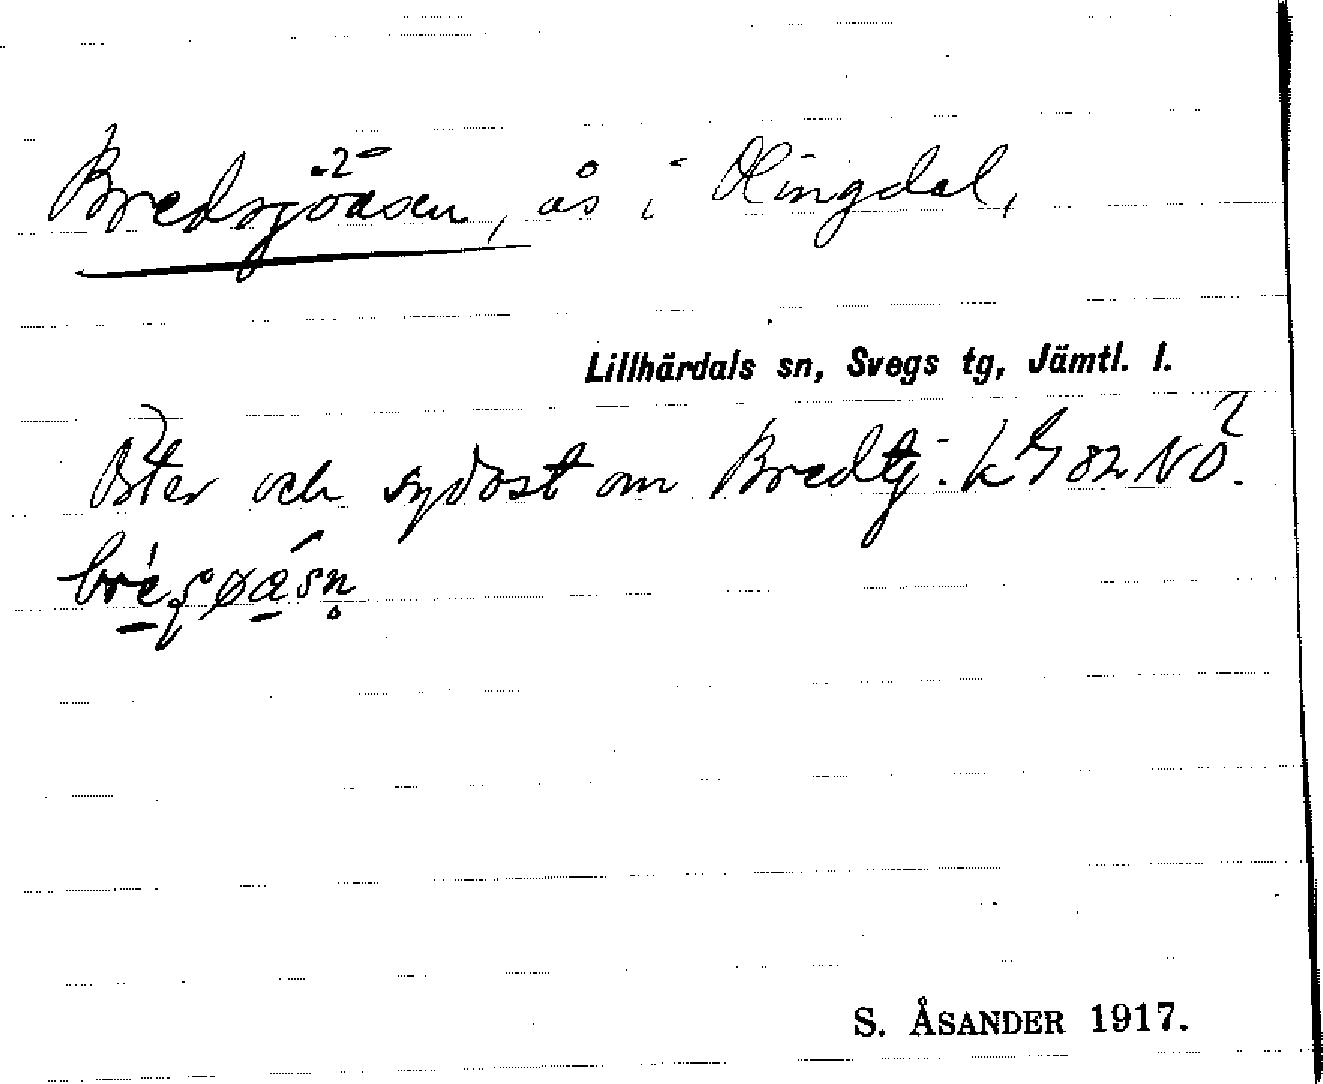 Bredsjöåsen, ås i Olingdal,
Lillhärdals sn, Svegs tg, Jämtl. l.
Öster och sydost om Bredtj. k 82 NÖ.
S. ÅSANDER 1917.